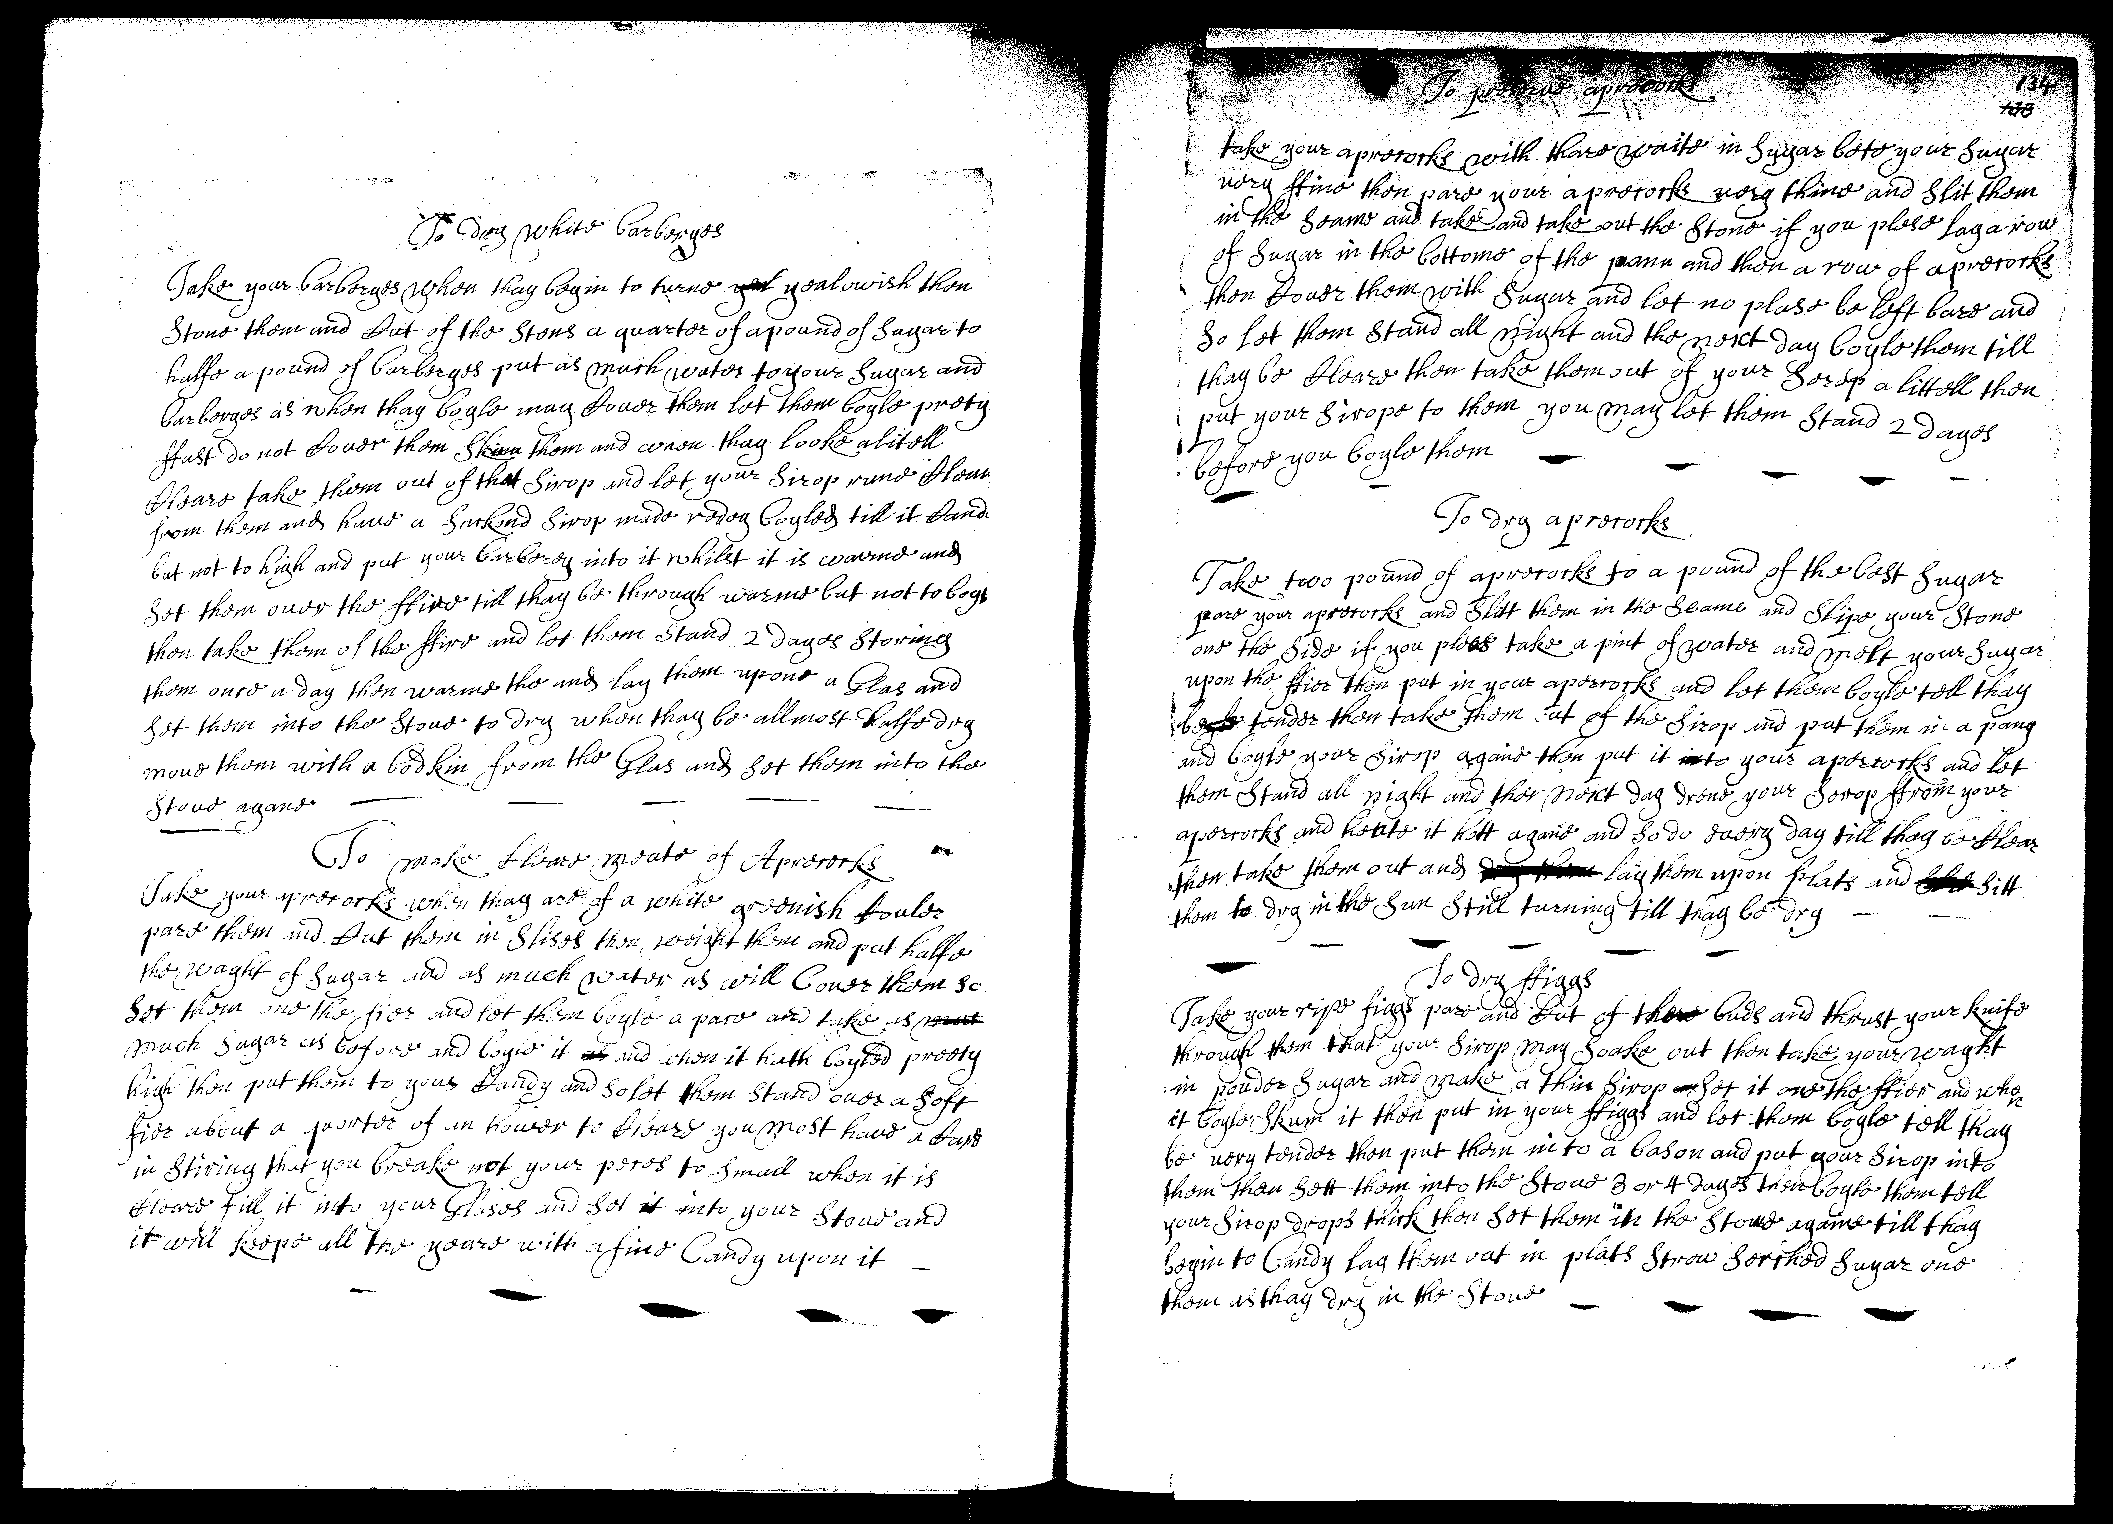 To dry white barberyes
Take your barberyes when thay begin to turne yealowish then
Stone them and Cut of the Stens a quarter of a pound of Sugar to
halfe a pound of barberyes put as much water to your Sugar and
barberyes as when thay boyle may Couer them let them boyle prety
ffast do not Couer them Skum them and when thay looke alitell
Cleare take them out of that Sirop and let your Sirop rune Clean
from them and have a Seckond Sirop made redey boyled till it Cand
but not to high and put your barberey into it whilst it is warme and
Set them over the ffire till thay be through warme but not to boyl
then take them of the ffire and let them Stand 2 dayes Storing
them once a day then warme the and lay them upone a Glas and
Set them into the Stove to dry when thay be allmost halfe dry
move them with a bodkin from the Glas and Set them into the
Stove agane
To make Cleare meate of Aprecocks
Take your aprecocks when thay are of a white greenish Couler
pare them and Cut them in Slises then weight them and put halfe
the waght of Sugar and as much water as will Couer them so
Set them one the fier and let them boyle a pace and take as
much Sugar as before and boyle it and when it hath boyled preety
high then put them to your Candy and So let them Stand over a Soft
fier about a quorter of an hower to Cleare you most have a Care
in Stiring that you breake not your peces to Small when it is
Cleare fill it into your Glases and Set it into your Stove and
it will keepe all the yeare with a fine Candy upon it
To preserve aprecocks
134
138
take your aprecocks with thare waite in Sugar bete your Sugar
very ffine then pare your aprecocks very thine and Slit them
in the Seame and take and take out the Stone if you plese lay a row
of Sugar in the bottome of the pann and then a row of aprecocks
then Couer them with Sugar and let no plase be left bare and
So let them Stand all night and the next day boyle them till
thay be Cleare then take them out of your Serop a littell then
put your Sirope to them you may let them Stand 2 dayes
before you boyle them
To dry aprecocks
Take two pound of aprecocks to a pound of the best Sugar
pare your aprecocks and Slitt them in the Seame and Slipe your Stone
one the Side if you plees take a pint of water and melt your Sugar
upon the ffier then put in your apercocks and let them boyle tell thay
be tender then take them out of the Sirop and put them in a pang
and boyle your Sirop agane then put it into your apercocks and let
them Stand all night and ther next day drene your Serop ffrom your
apercocks and heate it hott agane and So do every day till thay be Clear
then take them out and lay them upon plats and Sitt
them to dry in the Sun Still turning till thay be dry
To dry ffiggs
Take your ripe figgs pare and Cut of there buds and thrust your knife
through them that your Sirop may Soake out then take your waght
in pouder Sugar and make a thin Sirop Set it one the ffier and when
it boyles Skum it then put in your ffiggs and let them boyle tell thay
be very tender then put them in to a bason and put your Sirop into
them then Sett them into the Stove 3 or 4 dayes then boyle them tell
your Sirop drops thick then Set them in the Stove againe till thay
begin to Candy lay them out in plats Strow Serched Sugar one
them as thay dry in the Stove